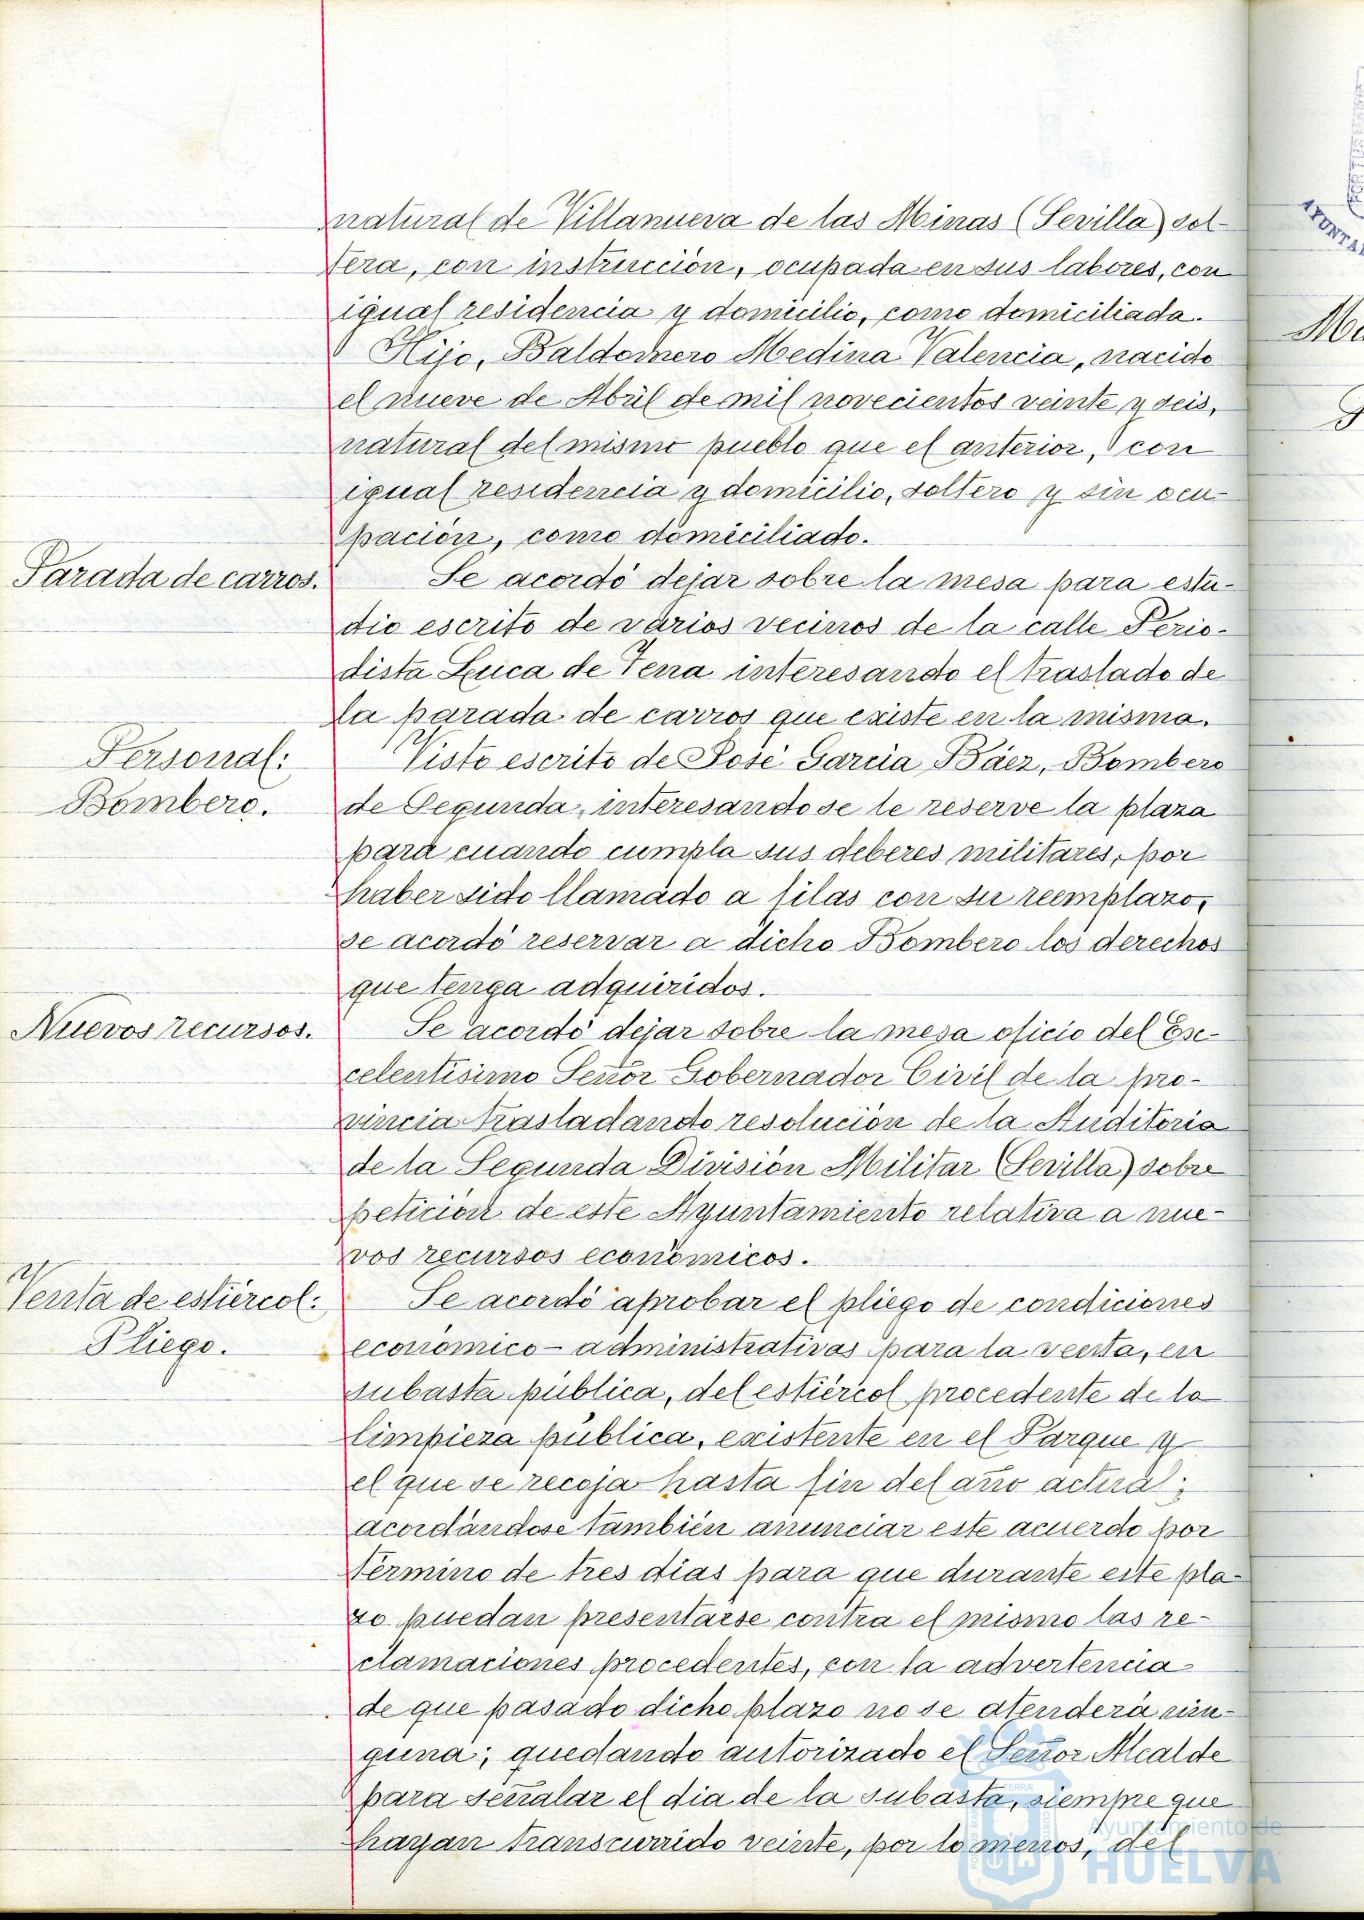 natural de Villanueva de las Minas (Sevilla) sol-
tera, con instrucción, ocupada en sus labores, con
igual residencia y domicilio, como domiciliada.
Hijo, Baldomero Medina Valencia, nacido
el nueve de Abril de mil novecientos veinte y seis,
natural del mismo pueblo que el anterior, con
igual residencia y domicilio, soltero y sin ocu-
pación, como domiciliado.
Parada de carros.
Se acordó dejar sobre la mesa para estu-
dio escrito de varios vecinos de la calle Perio-
dista Luca de Tena interesando el traslado de
la parada de carros que existe en la misma.
Personal:
Bombero.
Visto escrito de José García Báez, Bombero
de Segunda, interesando se le reserve la plaza
para cuando cumpla sus deberes militares, por
haber sido llamado a filas con su reemplazo,
se acordó reservar a dicho Bombero los derechos
que tenga adquiridos.
Nuevos recursos.
Se acordó dejar sobre la mesa oficio del Exc-
celentísimo Señor Gobernador Civil de la pro-
vincia trasladando resolución de la Auditoria
de la Segunda División Militar (Sevilla) sobre
petición de este Ayuntamiento relativa a nue-
vos recursos económicos.
Venta de estiércol:
Pliego.
Se acordó aprobar el pliego de condiciones
económico-administrativas para la venta, en
subasta pública, del estiércol procedente de la
limpieza pública, existente en el Parque y
el que se recoja hasta fin del año actual;
acordándose también anunciar este acuerdo por
término de tres días para que durante este pla-
zo puedan presentarse contra el mismo las re-
clamaciones procedentes, con la advertencia
de que pasado dicho plazo no se atenderá nin-
guna; quedando autorizado el Señor Alcalde
para señalar el día de la subasta, siempre que
hayan transcurrido veinte, por lo menos, del
Ayuntamiento de
HUELVA